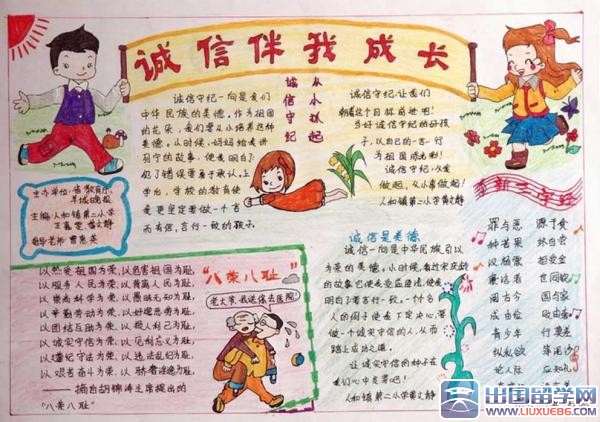 诚信伴我成长
从小做起
诚信守纪
诚信守纪一向是我们
中华民族的美德,作为祖国
的花朵,我们要从小培养这种
美德。从小时候,妈妈给我讲
的故事,使我明白了:
犯了错误要勇于承认。上
学后,学校的教育使
我更坚定要做一个言
而有信,言行一致的孩子。
诚信守纪,让我们
朝着这个目标前进吧!
当好诚信守纪的好孩
子,以自己的一言一行
为祖国添光彩!
诚信守纪,从我
做起,从小事做起!
人和镇第二小学黄文静
主办单位:省教育厅
羊城晚报
主编:人和镇第二小学
黄文静
指导老师
以热爱祖国为荣,以危害祖国为耻,
以服务人民为荣,以背离人民为耻,
以崇尚科学为荣,以愚昧无知为耻,
以辛勤劳动为荣,以好逸恶劳为耻,
以团结互助为荣,以损人利己为耻,
以诚实守信为荣,以见利忘义为耻,
以遵纪守法为荣,以违法乱纪为耻,
以艰苦奋斗为荣,以骄奢淫逸为耻。
——摘自胡锦涛主席提出的
“八荣八耻”
“八荣八耻”
老大爷,我送你去医院!
诚信是美德
诚信一向是中华民族引以
为荣的美德。小时候,看过宋庆龄
的故事,它使我受益匪浅,使我
明白了要言行一致。一个个名
人的例子使我下定决心,要
做一个诚实守信的人,从而
踏上成功之道。
让诚实守信的种子在
我们心中发芽吧!
人和镇第二小学黄文静
美言美语
罪与恶
种苦果
终自尝
相受全
世同钦
阅古今
国与家
成由俭
败由奢
青少年
行莫差
论人际
应知礼
出国留学网
www.liuxue86.com